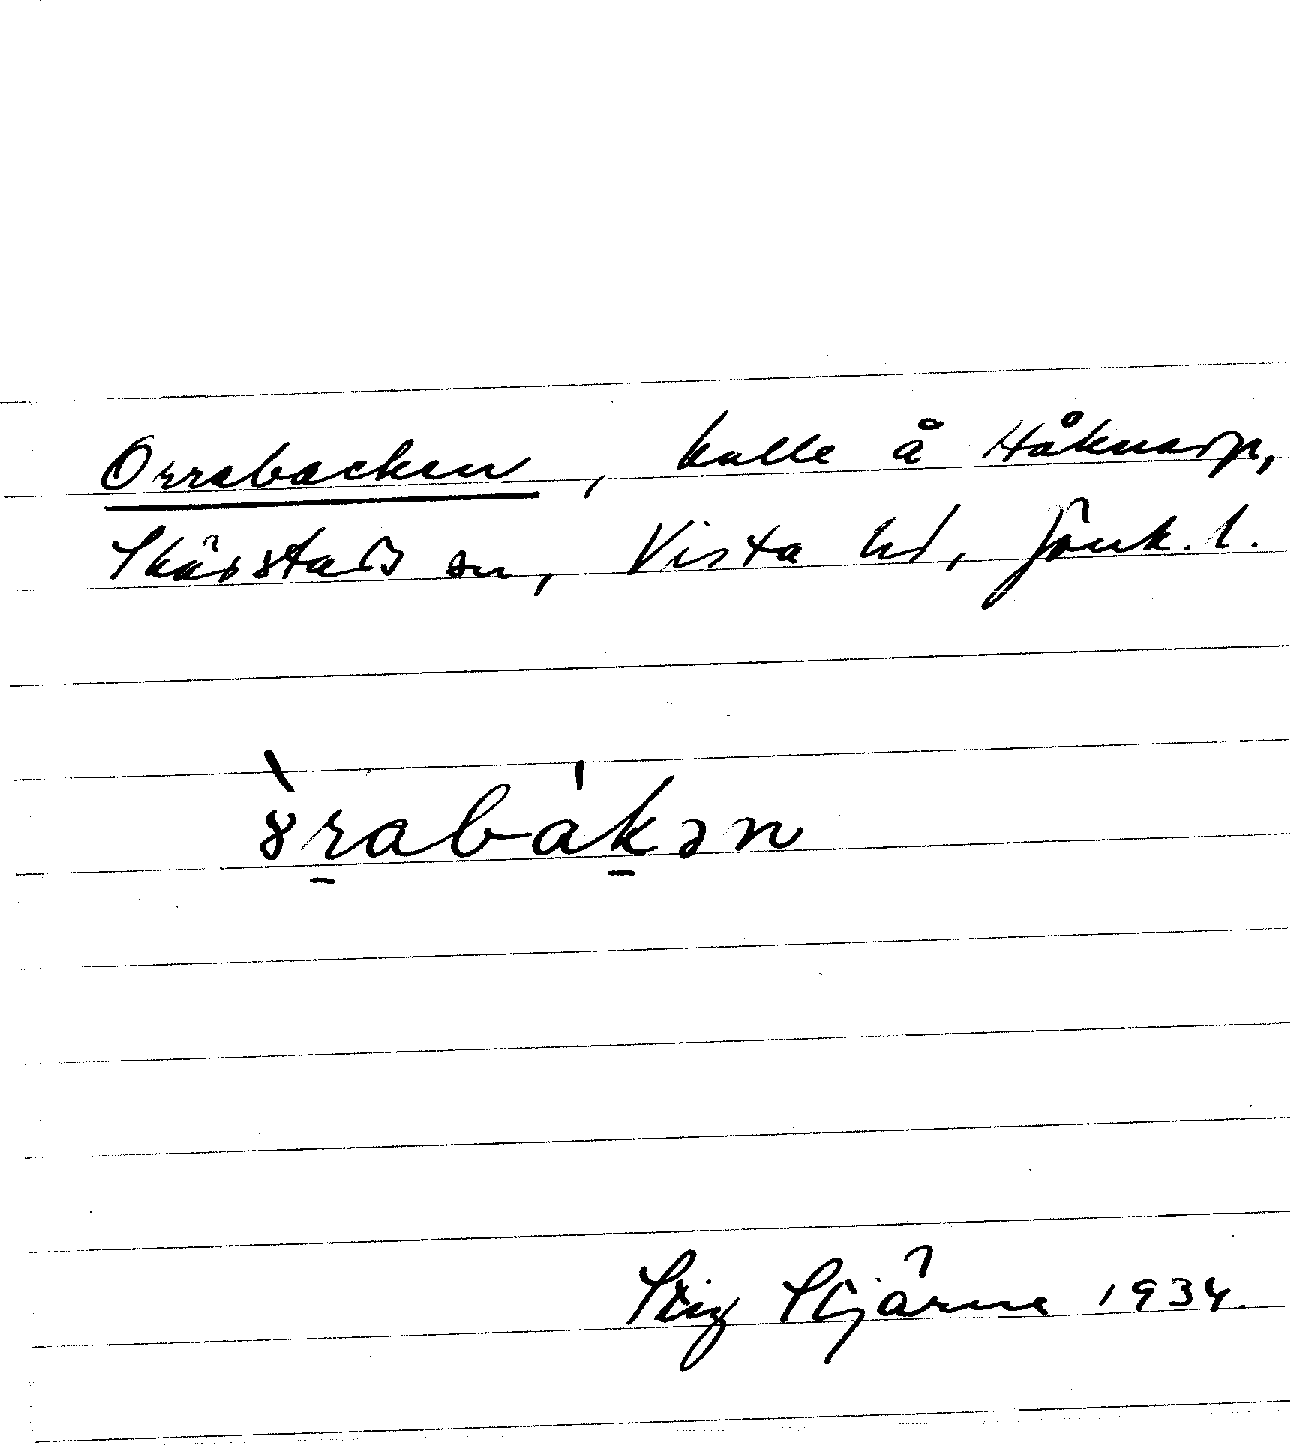 Orrabacken, kulle å Håknarp,
Skärstads sn, Vista hd, Jönk. l.
ȣ̀ṟabáḵən
Stig Stjärne 1934.